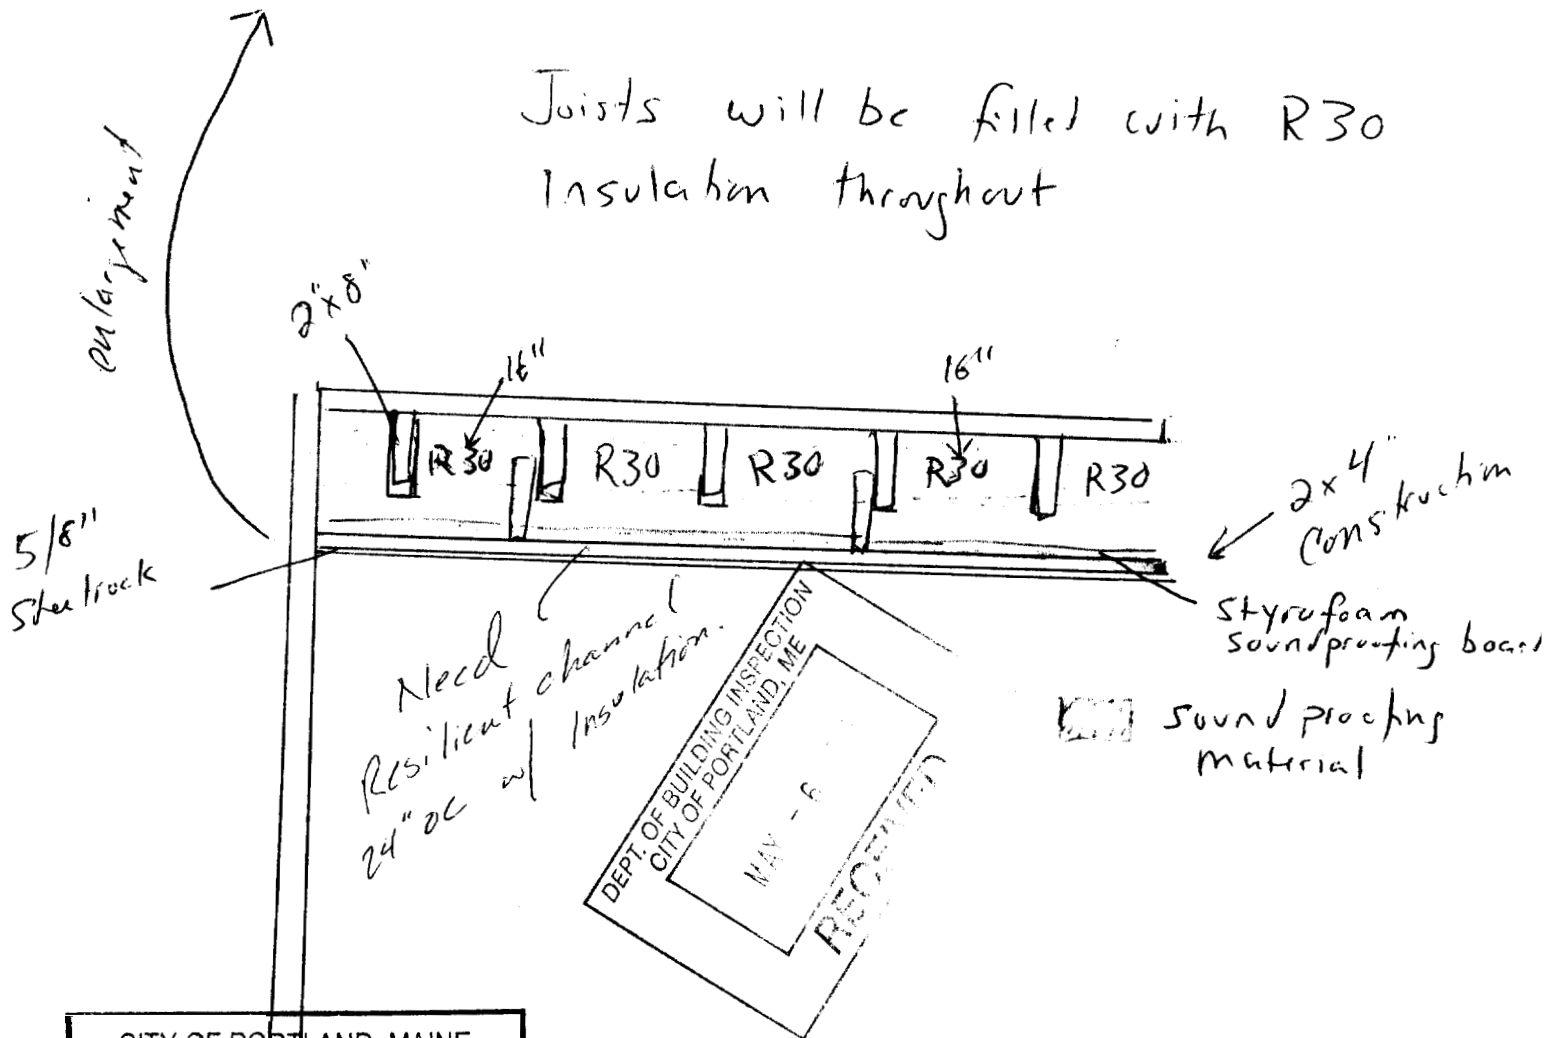 enlargement
Joists will be filled with R30
Insulation throughout
2"x8"
16"
16"
R30
R30
R30
R30
R30
5/8"
Sheetrock
2x4"
Construction
Styrofoam
Soundproofing board
Need
Resilient channel
24" OC w/ Insulation.
Sound proofing
material
DEPT. OF BUILDING INSPECTION
CITY OF PORTLAND, ME
MAY - 6
RECEIVED
CITY OF PORTLAND, MAINE